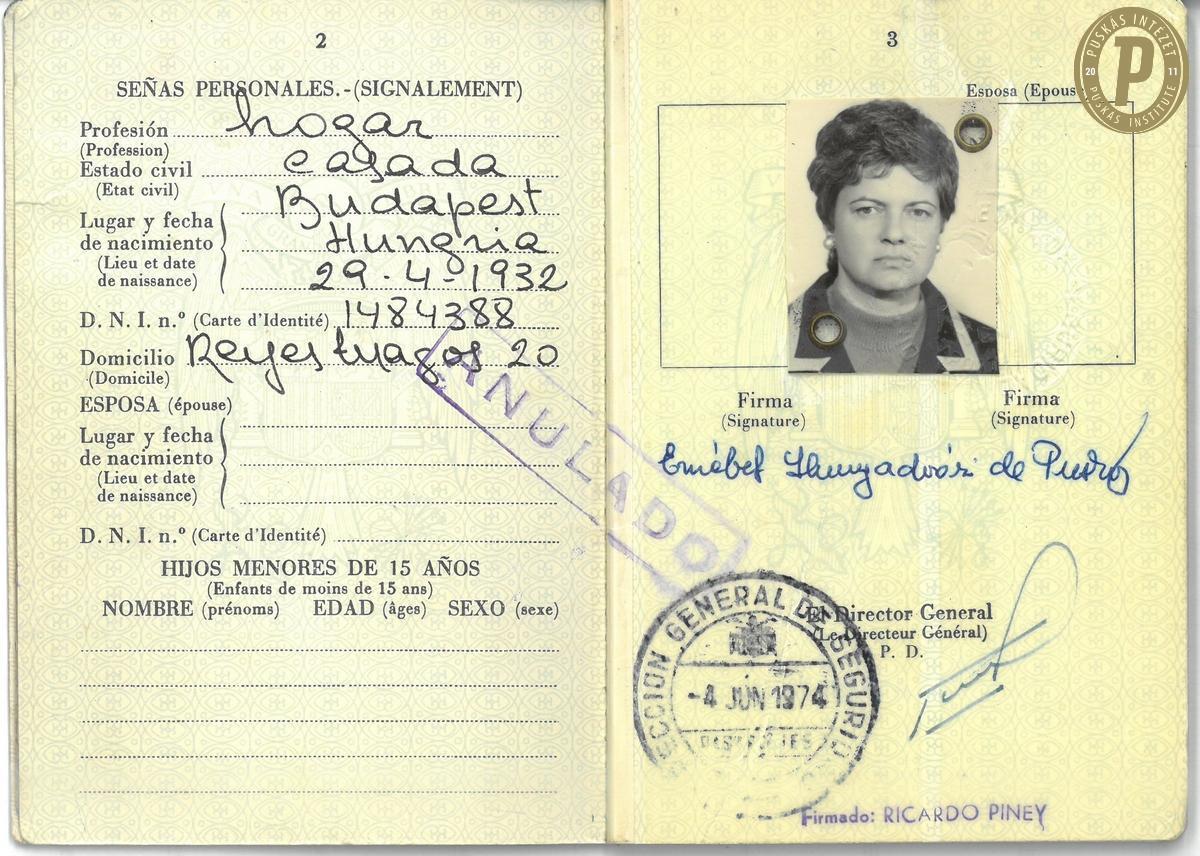 2
SEÑAS PERSONALES.-(SIGNALEMENT)
Profesión hogar
(Profession)
Estado civil casada
(Etat civil)
Lugar y fecha de nacimiento Budapest
Hungria
(Lieu et date de naissance) 29-4-1932
D. N. I. n.º (Carte d'Identité) 1484388
Domicilio Reyes Magos 20
(Domicile)
ESPOSA (épouse)
Lugar y fecha
de nacimiento
(Lieu et date
de naissance)
D. N. I. n.º (Carte d'Identité)
HIJOS MENORES DE 15 AÑOS
(Enfants de moins de 15 ans)
NOMBRE (prénoms) EDAD (âges) SEXO (sexe)
ANULADO
3
PUSKÁS INTÉZET
20 P 11
PUSKÁS INSTITUTE
Esposa (Epous
Firma
(Signature)
Firma
(Signature)
de
El Director General
(Le Directeur Général)
P. D.
ECCION GENERAL DE SEGURID
-4 JUN 1974
Firmado: RICARDO PINEY